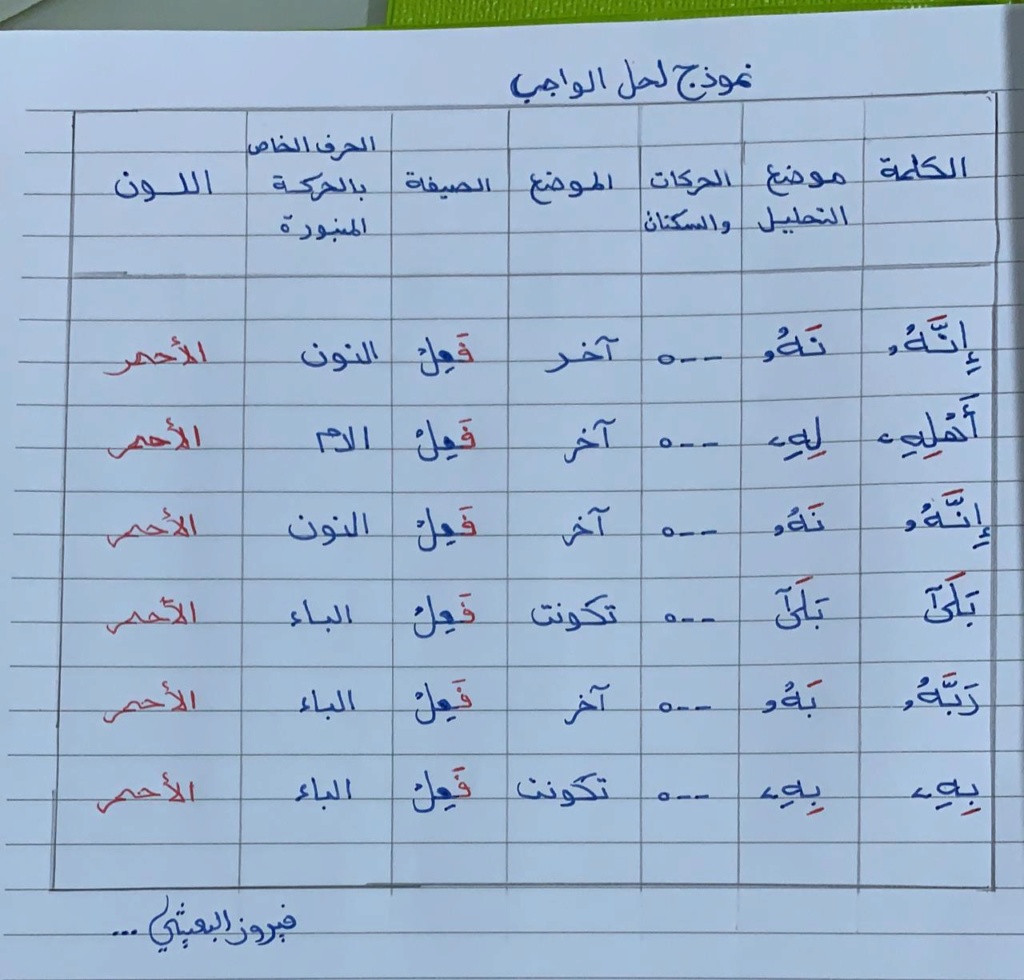 نموذج لحل الواجب
الكلمة موضع التحليل الحركات والسكنات الموضع الصيغة الحرف الخاص بالحركة المنبورة اللون
إِنَّهُۥ نَهُۥ --ه آخر فَعِلْ النون الأحمر
أَهْلِهِۦ لِهِۦ --ه آخر فَعِلْ الام الأحمر
إِنَّهُۥ نَهُۥ --ه آخر فَعِلْ النون الأحمر
بَلَىٰٓ بَلَىٰٓ --ه تكونت فَعِلْ الباء الأحمر
رَبَّهُۥ بَهُۥ --ه آخر فَعِلْ الباء الأحمر
بِهِۦ بِهِۦ --ه تكونت فَعِلْ الباء الأحمر
فيروز ...